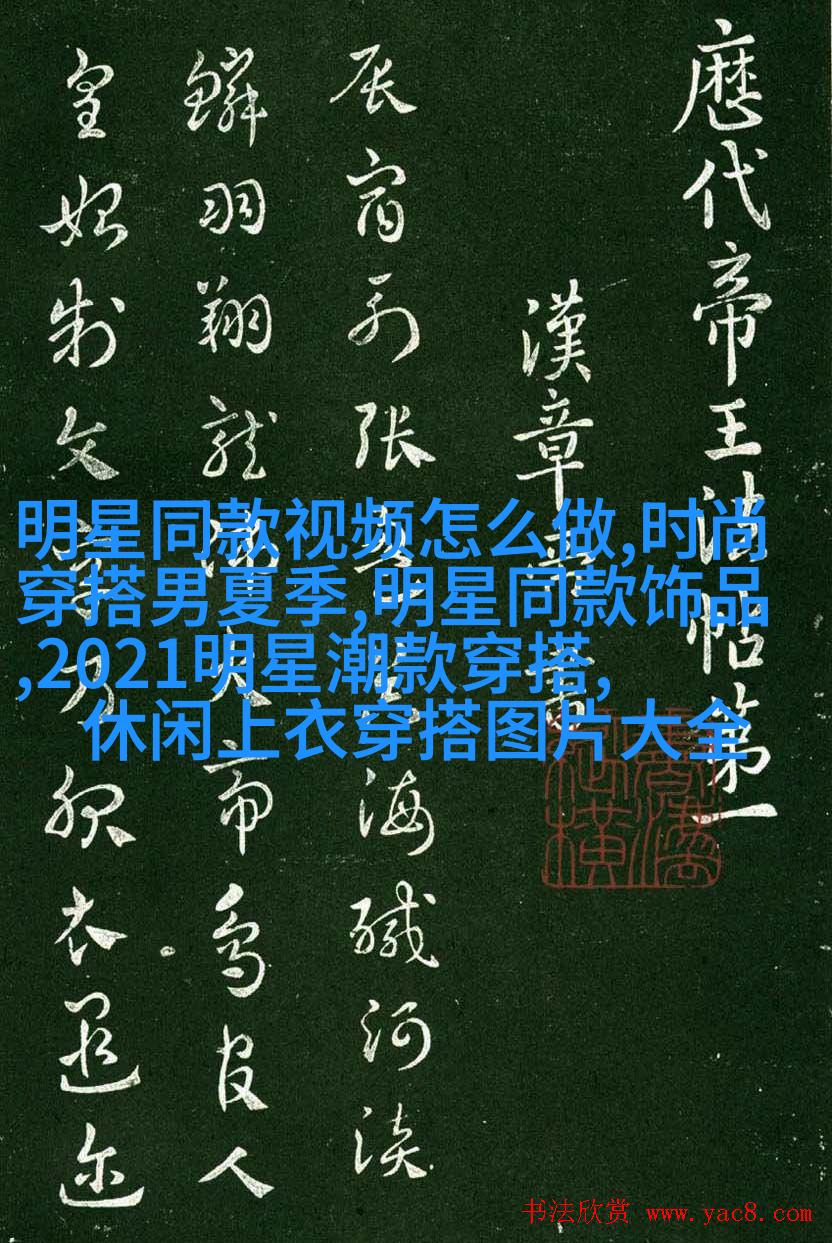 歷代帝王法帖第一
漢章帝書
辰宿列張海醎河淡
鱗羽翔龍師火帝鳥官人
皇始制文字乃服衣遐迩
明星同款视频怎么做,时尚
穿搭男夏季,明星同款饰品
,2021明星潮款穿搭,
休闲上衣穿搭图片大全
书法欣赏 www.yac8.com